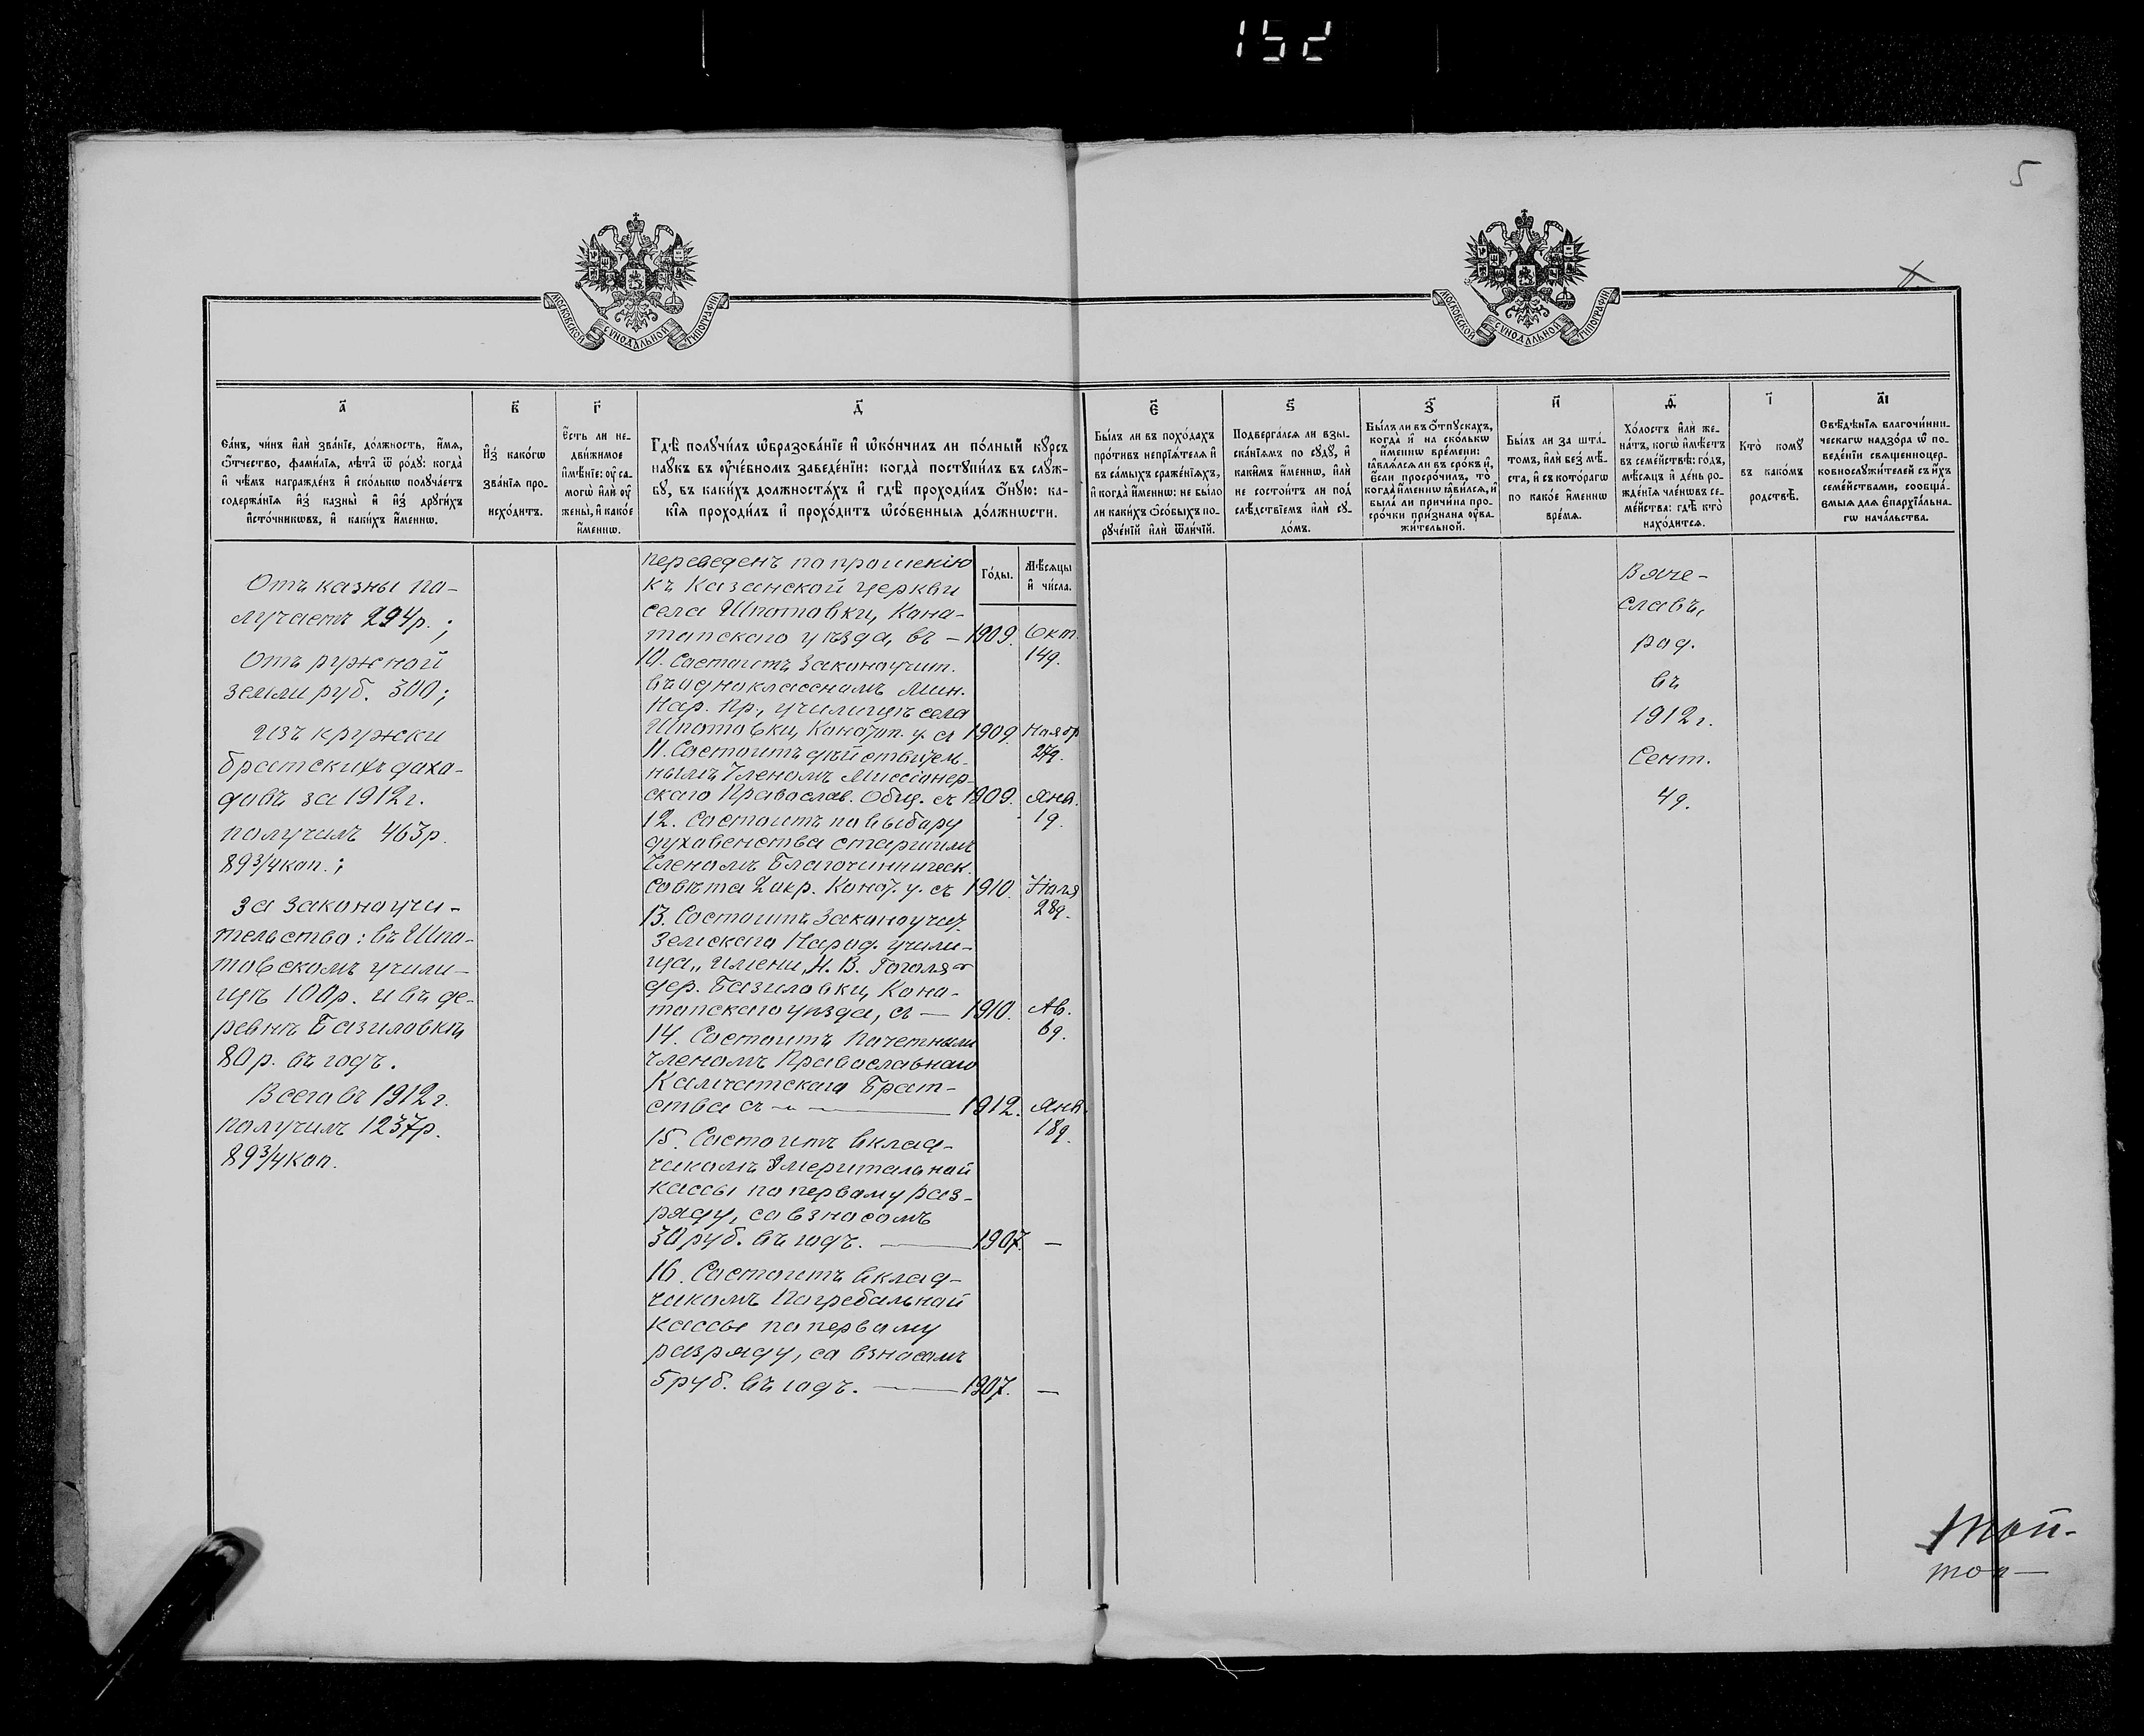 152
5
МОСКОВСКОЙ СУНОДАЛЬНОЙ ТИПОГРАФІИ
МОСКОВСКОЙ СУНОДАЛЬНОЙ ТИПОГРАФІИ
а҃
Са́нъ, чи́нъ и҆лѝ зва́нїе, до́лжность, и҆́мѧ,
ѻ҆́тчество, фами́лїѧ, лѣ́та ѿ ро́дꙋ: когда̀
и҆ чѣ́мъ награжде́нъ и҆ ско́лькѡ полꙋча́етъ
содержа́нїѧ и҆з̾ казны̀ и҆ и҆з̾ дрꙋги́хъ
и҆сто́чникѡвъ, и҆ каки́хъ и҆́меннѡ.
в҃
И҆з̾ како́гѡ
зва́нїѧ про-
исхо́дитъ.
г҃
Є҆́сть ли не-
дви́жимое
и҆мѣ́нїе: ᲂу҆ са-
могѡ̀ и҆лѝ ᲂу҆
жены̀, и҆ како́е
и҆́меннѡ.
д҃
Гдѣ̀ полꙋчи́лъ ѡ҆бразова́нїе и҆ ѡ҆ко́нчилъ ли по́лный кꙋ́рсъ
наꙋ́къ въ ᲂу҆че́бномъ заведе́нїи: когда̀ постꙋпи́лъ въ слꙋ́ж-
бꙋ, въ каки́хъ должностѧ́хъ и҆ гдѣ̀ проходи́лъ ѻ҆́нꙋю: ка-
кі́ѧ проходи́лъ и҆ прохо́дитъ ѡ҆со́бенныѧ до́лжнѡсти.
є҃
Бы́лъ ли въ похо́дахъ
про́тивъ непрїѧ́телѧ и҆
въ са́мыхъ сраже́нїѧхъ,
и҆ когда̀ и҆́меннѡ: не бы́ло
ли каки́хъ ѻ҆со́быхъ по-
рꙋче́нїй и҆лѝ ѿли́чїй.
ѕ҃
Подверга́лсѧ ли взы-
ска́нїѧмъ по сꙋдꙋ̀, и҆
каки́мъ и҆́меннѡ, и҆лѝ
не состои́тъ ли под̾
слѣ́дствїемъ и҆лѝ сꙋ-
до́мъ.
з҃
Бы́лъ ли въ ѿпꙋска́хъ,
когда̀ и҆ на ско́лькѡ
и҆́меннѡ вре́мени:
ꙗ҆влѧ́лсѧ ли въ сро́къ и҆,
є҆́сли просро́чилъ, то̀
когда̀ и҆́меннѡ ꙗ҆ви́лсѧ, и҆
была̀ ли причи́на про-
сро́чки при́знана ᲂу҆ва-
жи́тельной.
и҃
Бы́лъ ли за шта́-
томъ, и҆лѝ без̾ мѣ́-
ста, и҆ съ кото́рагѡ
по како́е и҆́меннѡ
вре́мѧ.
ѳ҃
Хо́лостъ и҆лѝ же-
на́тъ, когѡ̀ и҆мѣ́етъ
въ семе́йствѣ: го́дъ,
мѣ́сѧцъ и҆ де́нь ро-
жде́нїѧ чле́нѡвъ се-
ме́йства: гдѣ̀ кто̀
нахо́дитсѧ.
і҃
Кто̀ комꙋ̀
въ како́мъ
родствѣ̀.
а҃і
Свѣ́дѣнїѧ благочи́нни-
ческагѡ надзо́ра ѡ҆ по-
веде́нїи свѧщенноцер-
ковнослꙋжи́телей съ и҆́хъ
семе́йствами, сообща́-
ємыѧ длѧ є҆парха́льна-
гѡ нача́льства.
Отъ казны по-
лучаетъ 294р.;
Отъ ружной
земли руб. 300;
Изъ кружки
братскихъ дохо-
довъ за 1912 г.
получилъ 463р.
89¾ коп.;
За законоучи-
тельство: въ Шпо-
товскомъ учили-
щѣ 100р. и въ де-
ревнѣ Базиловкѣ
80р. въ годъ.
Всего въ 1912 г.
получилъ 1237р.
89¾ коп.
Го́ды.
Мѣ́сѧцы
и҆ чи́сла.
переведенъ по прошенію
къ Казанской церкви
села Шпотовки, Коно-
топскаго уѣзда, въ — 1909. Окт.
14д.
10. Состоитъ законоучит.
въ одноклассномъ Мин.
Нар. Пр., училищѣ села
Шпотовки, Конотоп. у. съ 1909. Ноябр
27д.
11. Состоитъ дѣйствител-
нымъ Членомъ Миссіонер-
скаго Православ. Общ. съ 1909. Янв.
1д.
12. Состоитъ по выбору
духовенства старшимъ
Членомъ Благочинническ.
Совѣта 2 окр. Конот. у. съ 1910. Іюля
28д.
13. Состоитъ Законоучит.
Земскаго Народ. учили-
ща „Имени, Н. В. Гоголя"
дер. Базиловки, Коно-
топскаго уѣзда, съ — 1910. Ав.
6д.
14. Состоитъ Почетнымъ
членомъ Православнаго
Камчатскаго Брат-
ства съ — 1912. Янв.
18д.
15. Состоитъ вклад-
чикомъ Эмеритальной
кассы по первому раз-
ряду, со взносомъ
30 руб. въ годъ. — 1907. —
16. Состоитъ вклад-
чикомъ Погребальной
кассы по первому
разряду, со взносомъ
5 руб. въ годъ. — 1907. —
Вяче-
славъ,
род.
въ
1912 г.
Сент.
4д.